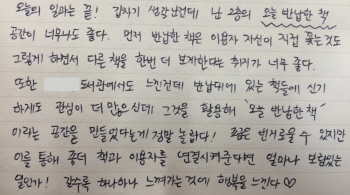 오늘의 일과는 끝! 갑자기 생각났건데 난 2층의 오늘 반납한 책
공간이 너무나도 좋다. 먼저 반납한 책은 이용자 자신이 직접 꽂는것도
그렇게 하면서 다른 책을 한번 더 보게한다는 취지가 너무 좋다.
또한 도서관에서도 느낀건데 반납대에 있는 책들에 신기
하게도 관심이 더 많으신데 그것을 활용해 '오늘 반납한 책'
이라는 공간을 만들었다는게 정말 놀랍다! 조금은 번거로울 수 있지만
이를 통해 좀더 책과 이용자를 연결시켜준다면 얼마나 보람있는
일인가! 갈수록 하나하나 느껴가는 것에 행복을 느낀다♡